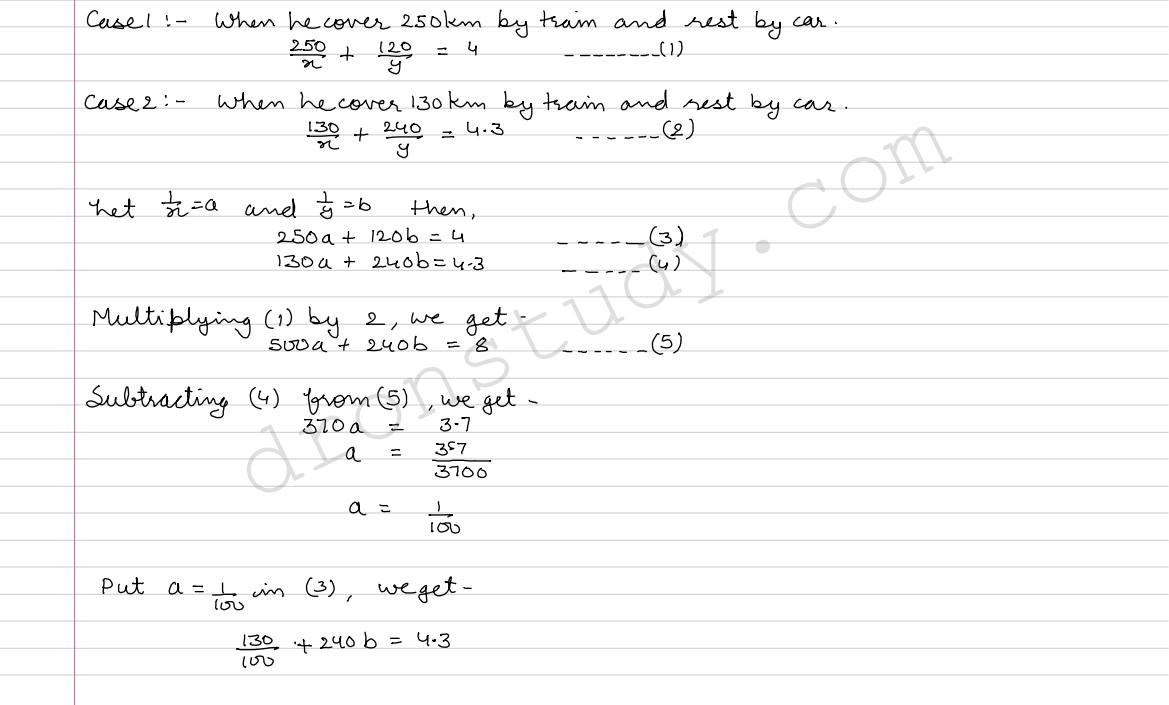 Case1 :- When he cover 250km by train and rest by car.
250/x + 120/y = 4 --------(1)
Case2 :- When he cover 130km by train and rest by car.
130/x + 240/y = 4.3 ------(2)
Let 1/x = a and 1/y = b then,
250a + 120b = 4 -----(3)
130a + 240b = 4.3 -----(4)
Multiplying (1) by 2, we get -
500a + 240b = 8 ------(5)
Subtracting (4) from (5), we get -
370a = 3.7
a = 37/3700
a = 1/100
Put a = 1/100 in (3), we get -
130/100 + 240b = 4.3
dronstudy.com